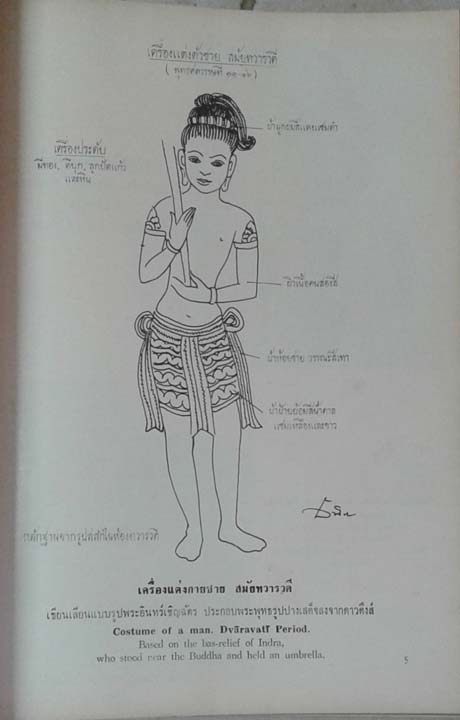 เครื่องแต่งตัวชาย สมัยทวารวดี
(พุทธศตวรรษที่ ๑๑-๑๖)
ผ้าผูกผมสีแดงแซมดำ
เครื่องประดับ
มีทอง, ดีบุก, ลูกปัดแก้ว
และหิน
ผิวเนื้อคนสองสี
ผ้าห้อยชาย วรรณะสีเทา
ผ้าฝ้ายย้อมสีน้ำตาล
แซมเหลืองและขาว
หลักฐานจากรูปสลักในห้องทวารวดี
เครื่องแต่งกายชาย สมัยทวารวดี
เขียนเลียนแบบรูปพระอินทร์เชิญฉัตร ประกอบพระพุทธรูปปางเสด็จลงจากดาวดึงส์
Costume of a man. Dvāravatī Period.
Based on the bas-relief of Indra,
who stood near the Buddha and held an umbrella.
5